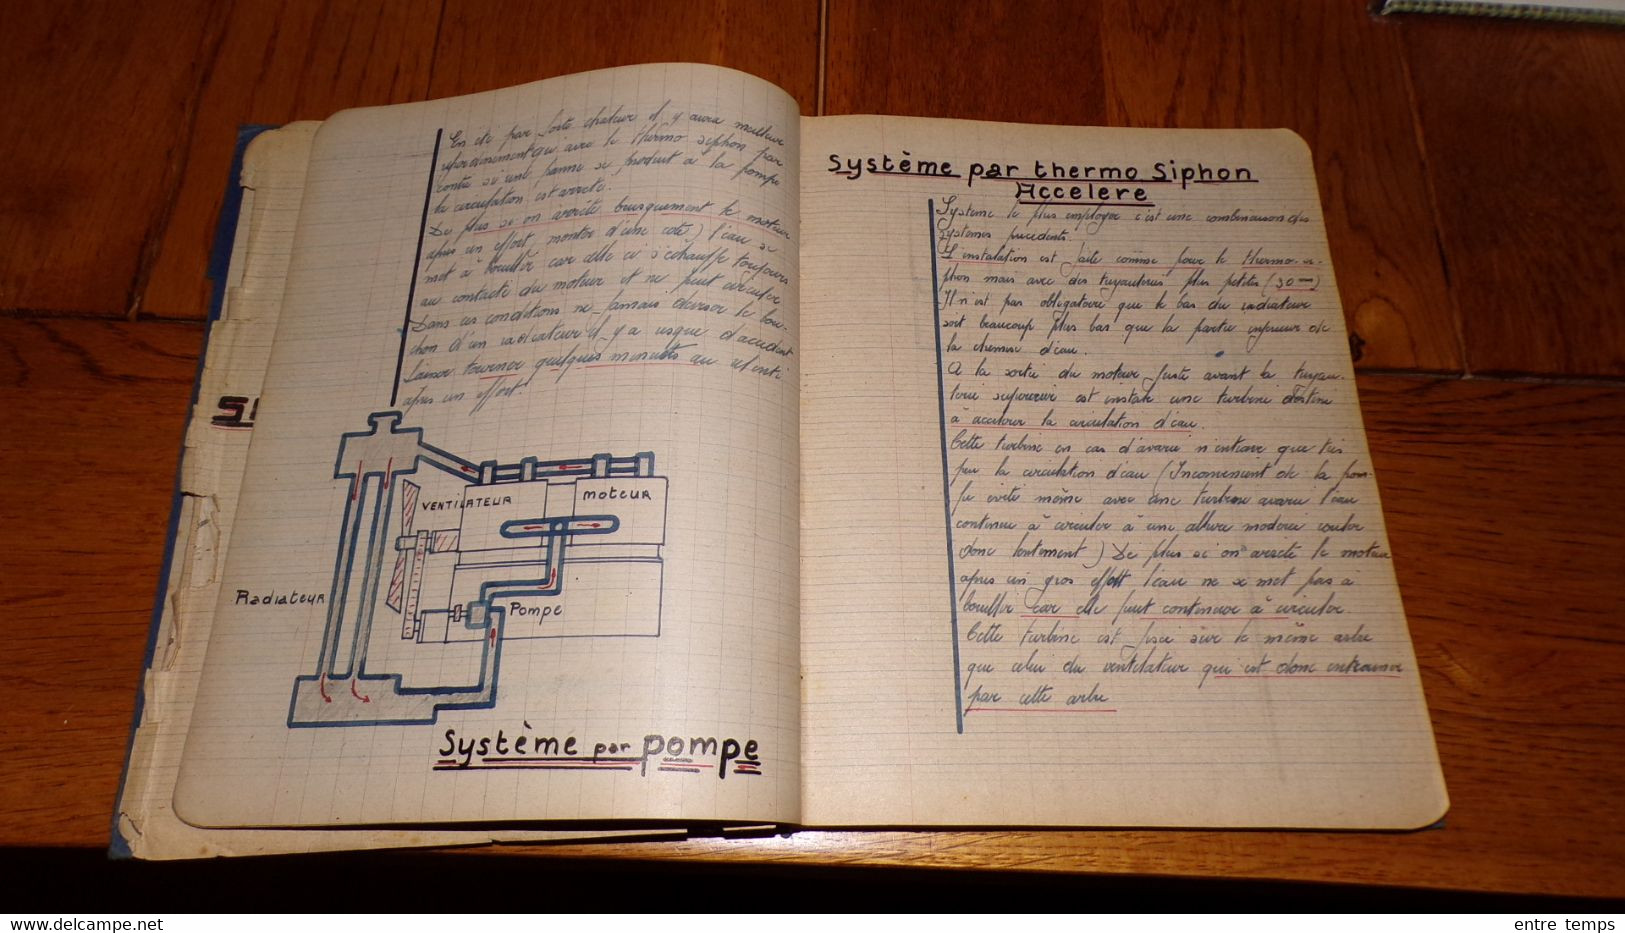 En été par forte chaleur il y aura meilleur
refroidissement qu'avec le thermo siphon par
contre si une panne se produit à la pompe
la circulation est arreté.
De plus si on arrête brusquement le moteur
après un effort, montée d'une cote) l'eau se
met à bouillir car elle ci s'échauffe toujours
au contact du moteur et ne peut circuler
Dans ces conditions ne jamais devisser le bou-
chon d'un radiateur il y a risque d'accident
Laisser tourner quelques minutes au ralenti
Après un effort.
VENTILATEUR
moteur
Radiateur
Pompe
Système par pompe
Système par thermo Siphon
Accelere
Système le plus employer c'est une combinaison des
systemes precedents.
L'instalation est faite comme pour le thermo-si-
phon mais avec des tuyauteries plus petites (30 mm)
Il n'est pas obligatoire que le bas du radiateur
soit beaucoup plus bas que la partie inferieur de
la chemise d'eau.
A la sortie du moteur juste avant la tuyau-
terie superieur est instalé une turbine destine
à accelerer la circulation d'eau.
Cette turbine en cas d'avarie n'entrave que très
peu la circulation d'eau (Inconvenient de la pom-
pe évité même avec une turbine avarie l'eau
continue à circuler à une allure moderé
donc lentement) De plus si on arrete le moteur
apres un gros effort l'eau ne se met pas à
bouillir car elle peut continuer à circuler.
Cette turbine est fixé sur le même arbre
que celui du ventilateur qui est donc entrainer
par cette arbre
www.delcampe.net
entre temps